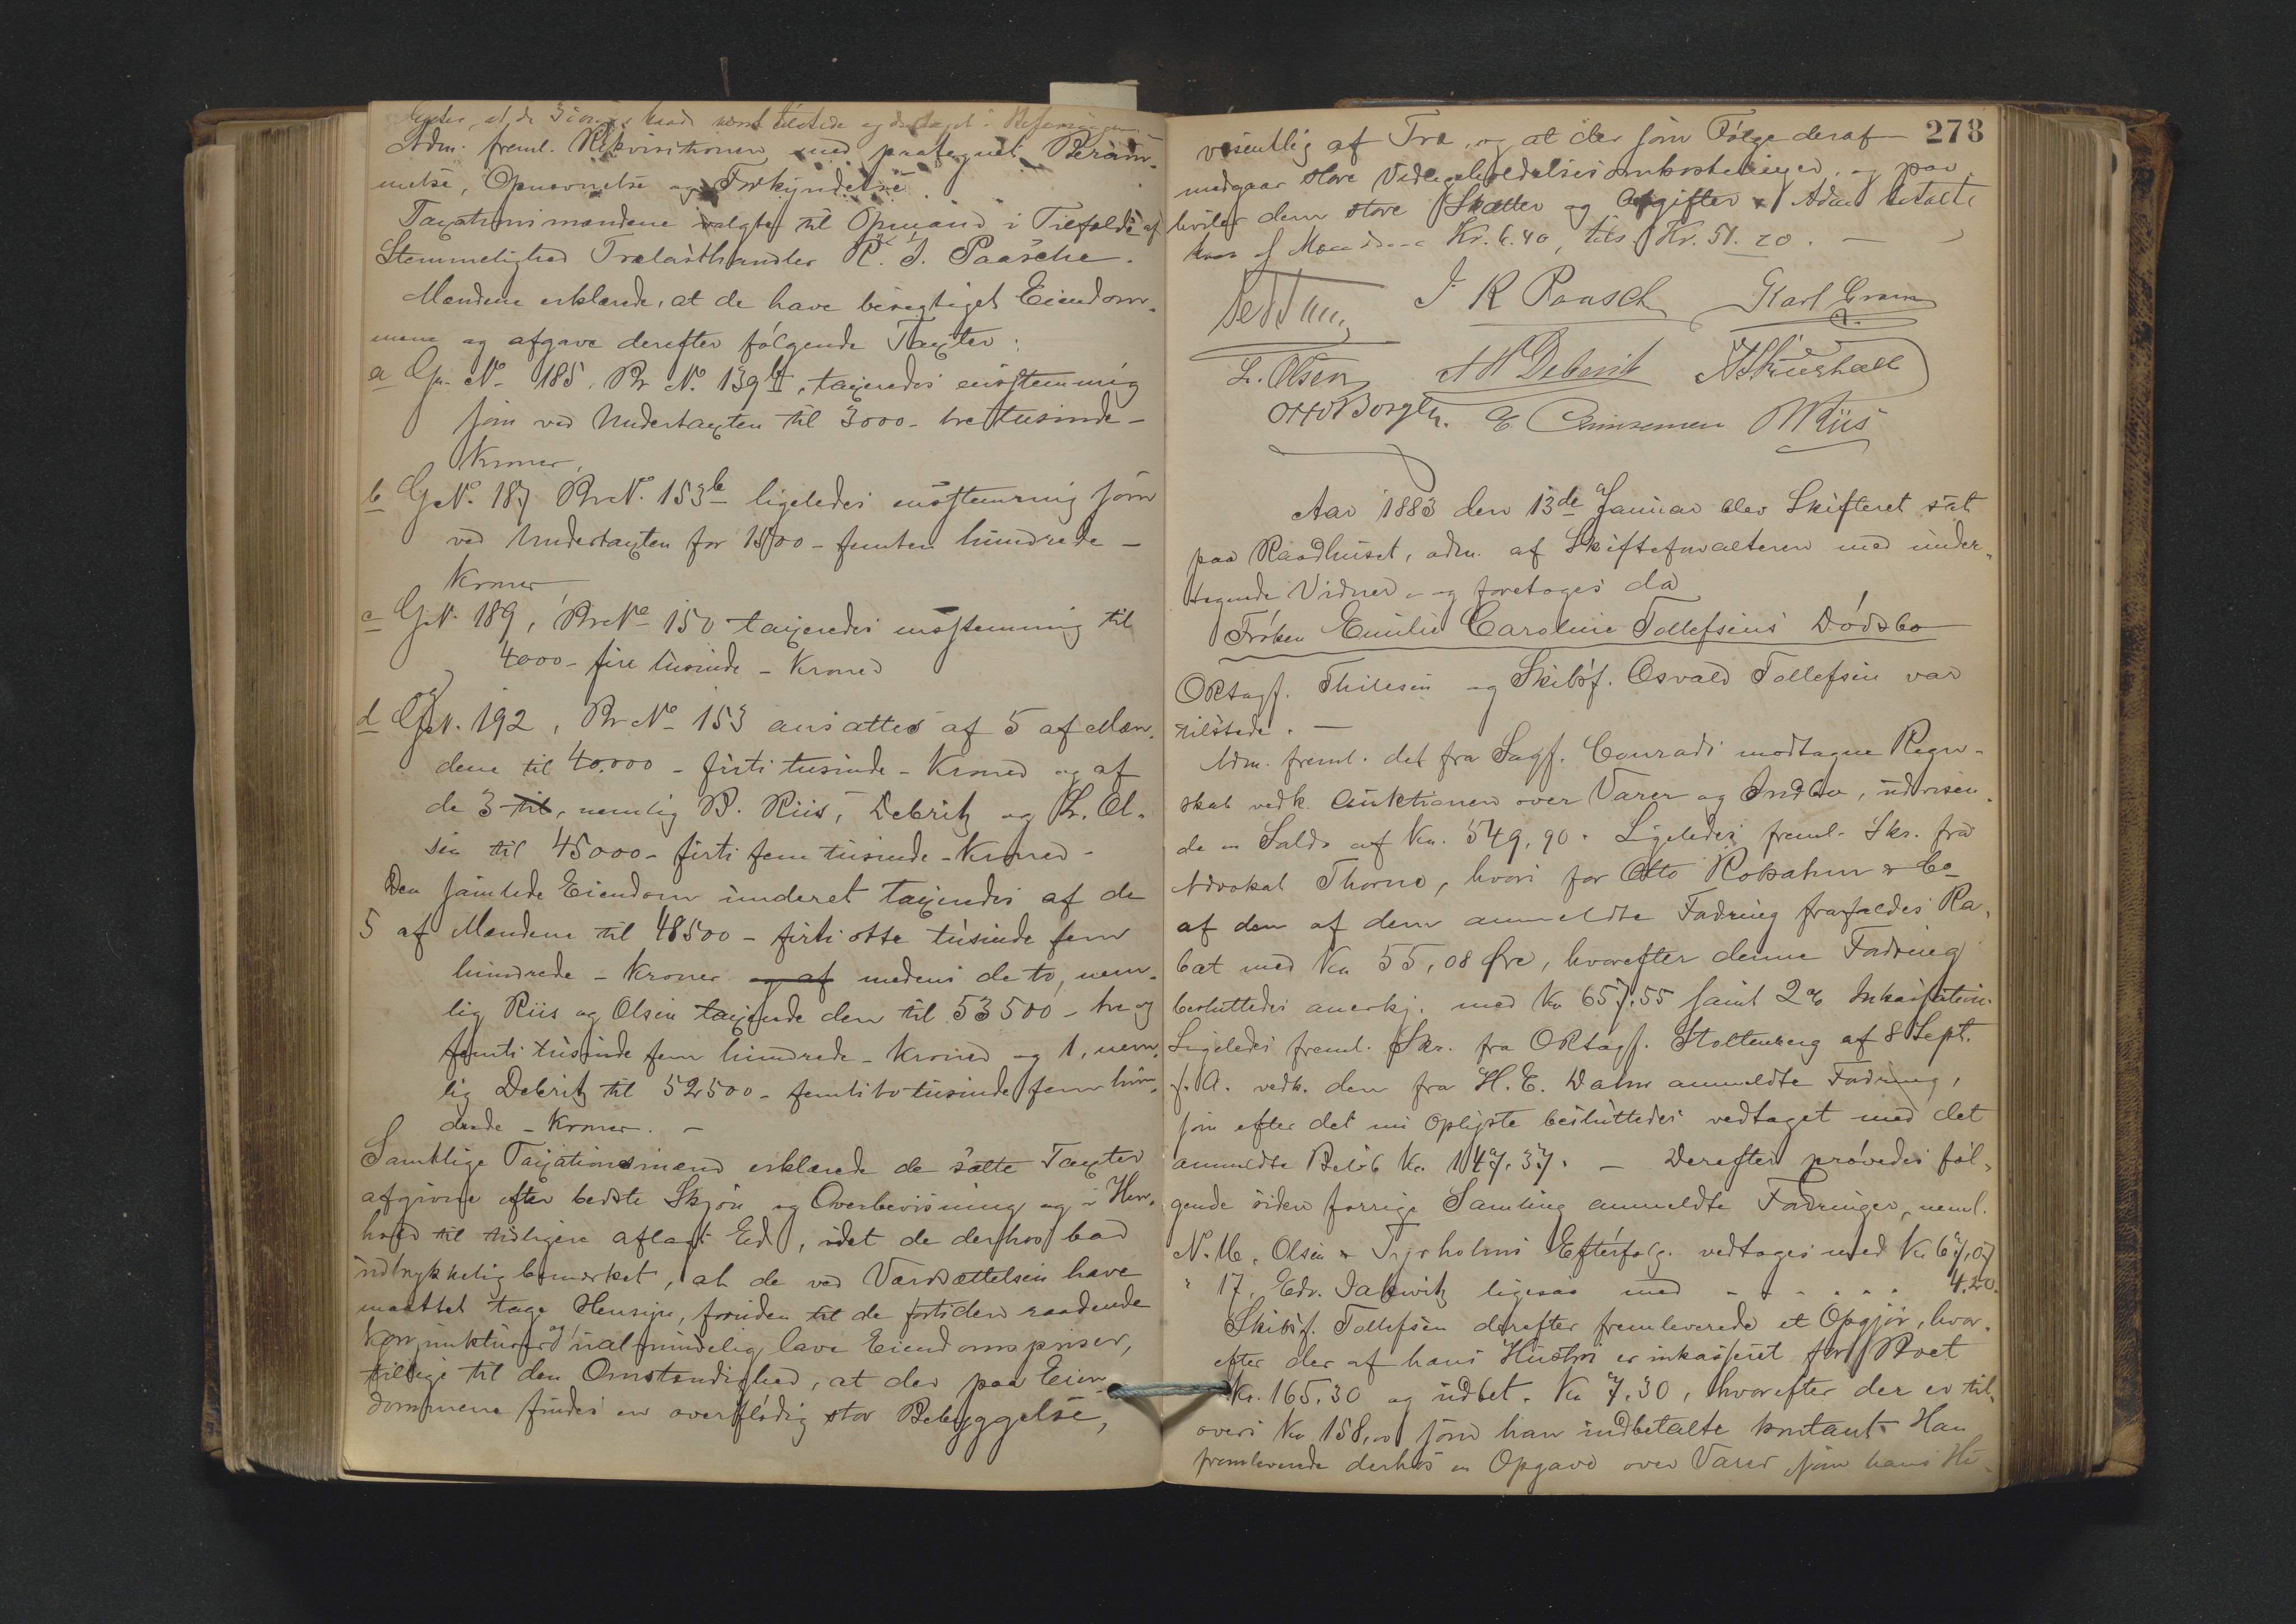 at de 3 vare tilstede
Adm. freml. Rekvisitionen med paategnet Beram-
melse, Opnævnelse og Forkyndelse.
Taxationsmændene valgte til Opmand i Tilfælde af
Stemmelighed Trælasthandler R. J. Paasche.
Mændene erklærede, at de have besigtiget Eiendom-
mene og afgave derefter følgende Taxter:
a G. No 185, Br No. 139b, taxeredes enstemmig
som ved Undertaxten til 3000 - tre tusinde -
Kroner,
b G No. 187 Br No. 153b ligeledes enstemmig som
ved Undertaxten for 1500 - femten hundrede -
Kroner
c G N. 189, Br No 150 taxeredes enstemmig til
4000 - fire tusinde - Kroner
og
d G N. 192, Br No 153 ansattes af 5 af Mæn-
dene til 40.000 - firti tusinde - Kroner og af
de 3 til, nemlig B. Riis, Debritz og L. Ol-
sen til 45000 - firti fem tusinde - Kroner -
Den samlede Eiendom underet taxeredes af de
5 af Mændene til 48500 - firti otte tusinde fem
hundrede - Kroner og af medens de to, nem-
lig Riis og Olsen taxerede den til 53500 - tre og
femti tusinde fem hundrede - Kroner og 1, nem-
lig Debritz til 52500 - femti to tusinde fem hun-
drede - Kroner. -
Samtlige Taxationsmænd erklærede de satte Taxter
afgivne efter bedste Skjøn og Overbevisning og i Hen-
hold til tidligere aflagt Ed, idet de derhos bad
udtrykkelig bemærket, at de ved Værdsættelsen have
maattet tage Hensyn, foruden til de for tiden raadende
Konjunkturer og ualmindelig lave Eiendomspriser,
tillige til den Omstændighed, at der paa Eien-
dommene findes en overflødig stor Bebyggelse,
278
væsentlig af Træ, og at der som Følge deraf
medgaar store Vedligeholdelsesomkostninger, og paa
hviler dem store Skatter og Afgifter. Adm. betalte
hver af Mændene Kr. 6.40, tils. Kr. 51.20. -
J R Paasch Karl Gram
L. Olsen A H Debrit
Otto Borgen. Riis
Aar 1883 den 13de Januar blev Skifteret sat
paa Raadhuset, adm. af Skifteforvalteren med under-
tegnede Vidner og foretoges da
Frøken Emilie Caroline Tollefsens Dødsbo
ORsagf. Thilesen og Skibsf. Osvald Tollefsen var
tilstede. -
Adm. freml. det fra Sagf. Conradi modtagne Regn-
skab vedk. Auktionen over Varer og Indbo, udvisen-
de en Saldo af Kr. 549,90. Ligeledes freml. Skr. fra
Advokat Thorne, hvori for Otto Robsahm & Co
af den af dem anmeldte Fordring frafaldes Ra-
bat med Kr 55,08 Øre, hvorefter denne Fordring
besluttedes anerkj. med Kr 657.55 samt 2% Inkassation.
Ligeledes freml. Skr. fra ORsagf. Stoltenberg af 8 Sept.
f. A. vedk. den fra H. E. Dahm anmeldte Fordring,
som efter det nu oplyste besluttedes vedtaget med det
anmeldte Beløb Kr. 147.37. - Derefter prøvedes føl-
gende siden forrige Samling anmeldte Fordringer, neml.
N. 16. Olsen & Tyrholms Efterfølg. vedtoges med Kr 67,07
" 17, Edv. Jakwitz ligesaa med - - - - - - 4.20.
Skibsf. Tollefsen derefter fremleverede et Opgjør, hvor-
efter der af hans Hustru er inkasseret for Boet
Kr. 165.30 og udbet. Kr 7.30, hvorefter der er til-
overs Kr 158,00 som han indbetalte kontant. Han
fremleverede derhos en Opgave over Varer som hans Hu-